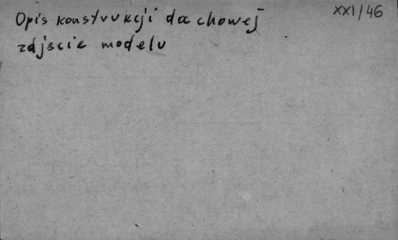 Opis konstrukcji dachowej
zdjscie modelu
XXI/46